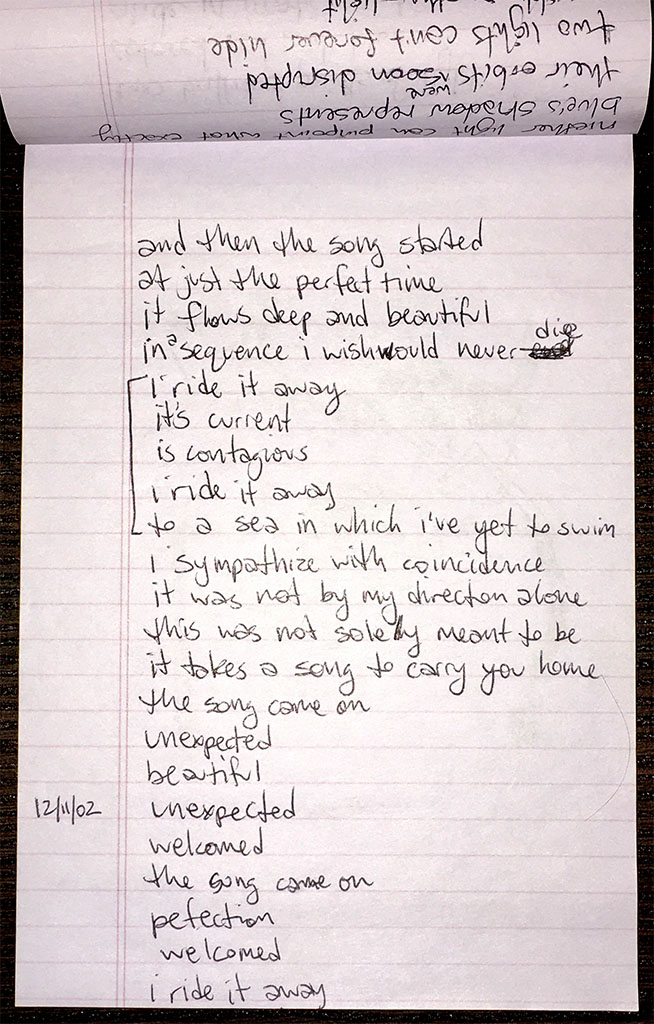 neither light can pinpoint what exactly
blue's shadow represents
their orbits were soon disrupted
two lights can't forever hide
light
and then the song started
at just the perfect time
it flows deep and beautiful
in a sequence i wish would never die
i ride it away
it's current
is contagious
i ride it away
to a sea in which i've yet to swim
i sympathize with coincidence
it was not by my directon alone
this was not solely meant to be
it takes a song to carry you home
the song came on
unexpected
beautiful
12/11/02 unexpected
welcomed
the song came on
pefection
welcomed
i ride it away